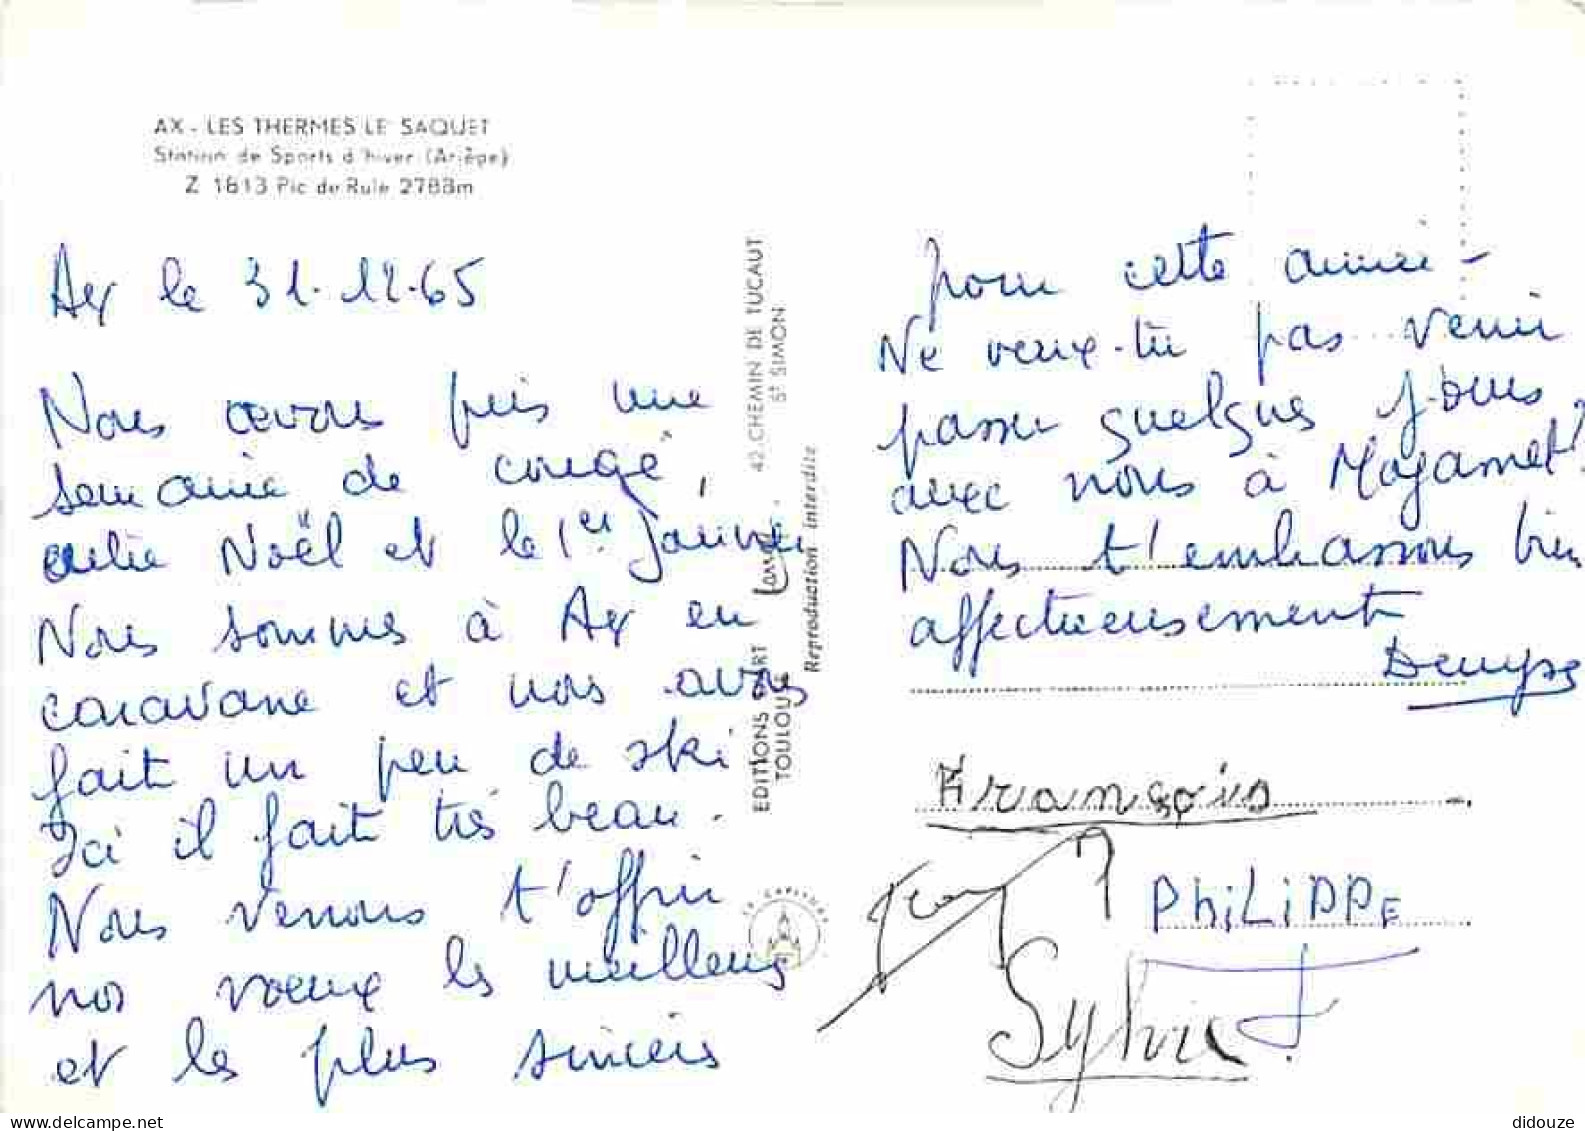 AX - LES THERMES LE SAQUET
Station de Sports d'hiver (Ariège)
Z 1813 Pic de Rule 2788m
Ax le 31.12.65
Nous avons pris une
semaine de congé,
entre Noël et le 1er Janvier
Nous sommes à Ax en
caravane et nous avons
fait un peu de ski
Ici il fait très beau.
Nous venons t'offrir
nos voeux les meilleurs
et les plus sincères
EDITIONS D'ART
42, CHEMIN DE TUCAUT
TOULOUSE
St SIMON
Reproduction interdite
pour cette année -
Ne veux-tu pas venir
passer quelques jours
avec nous à Mazamet?
Nous t'embrassons bien
affectueusement
Denyse
François
Jean
PHiLiPPE
Sylvie
didouze